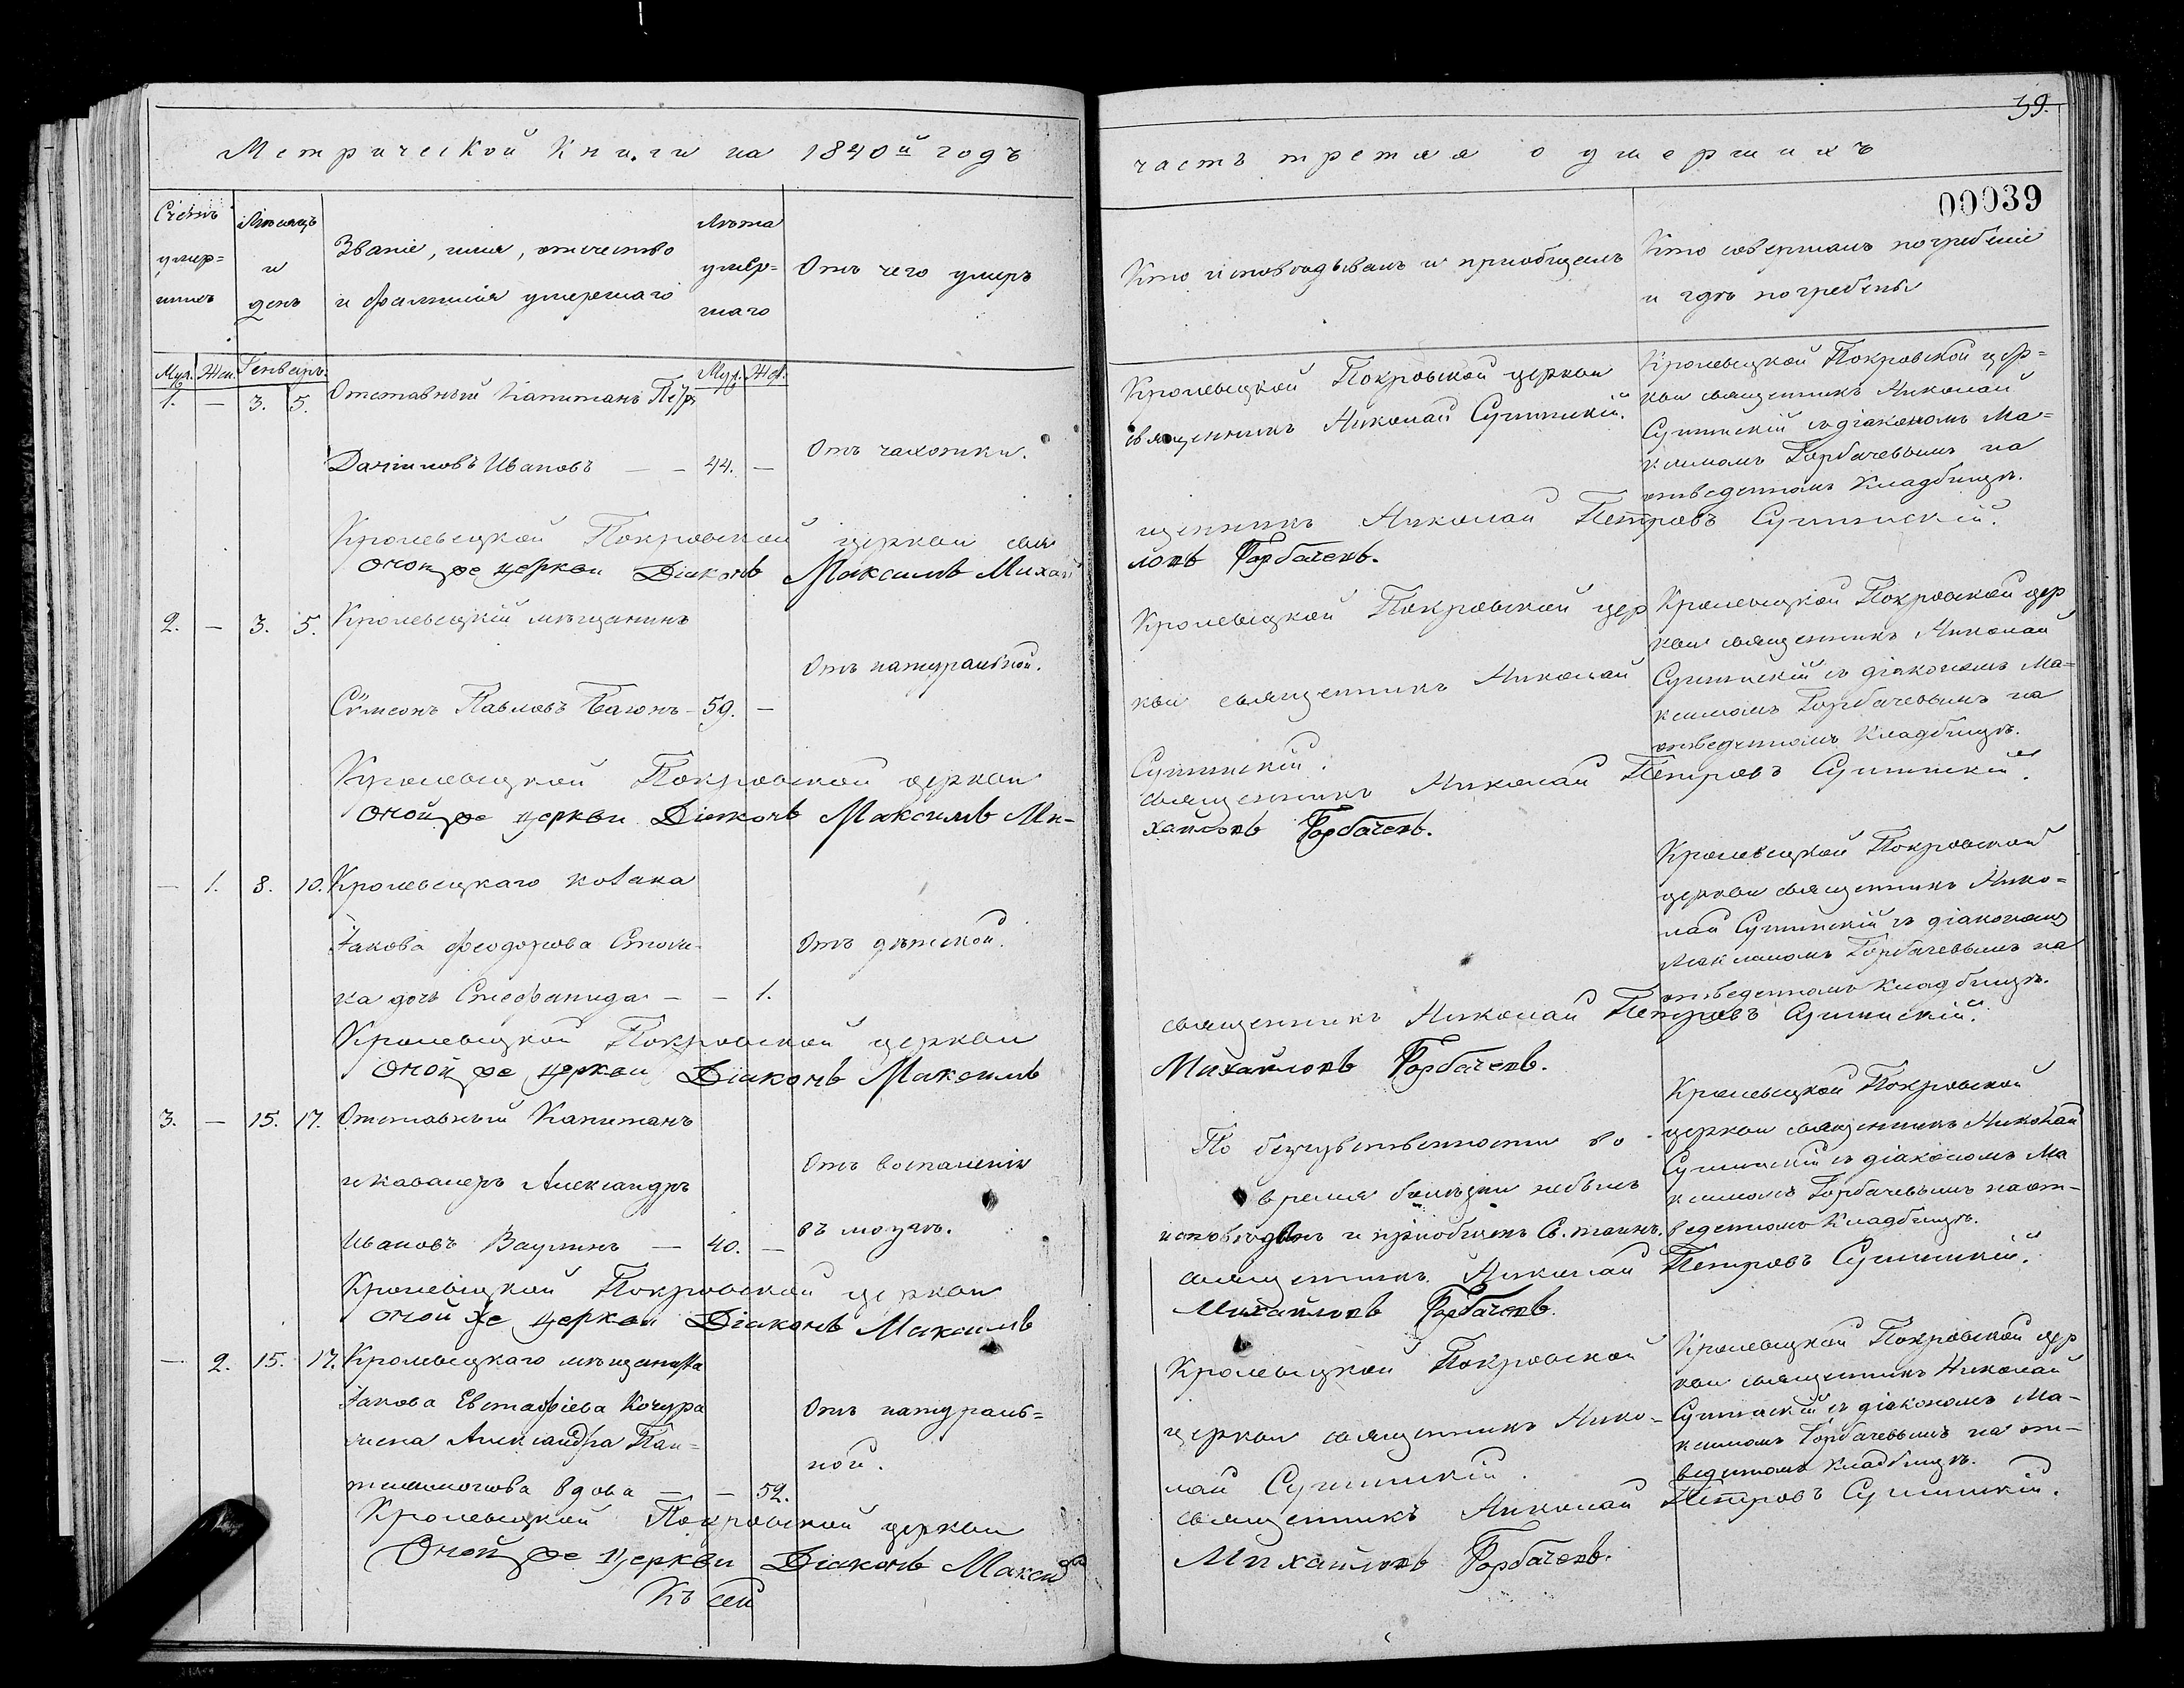 39.
Метрической Книги на 1840й годъ
часть третяя о умершихъ
00039
Счетъ умер-шихъ
Мѣсяцъ и день
Званіе, имя, отечество
и фамилія умершаго
Лѣта умер-шаго
Отъ чего умеръ
Кто исповѣдывалъ и пріобщалъ
Кто совершалъ погребеніе
и гдѣ погребены
Муж. Жен. Генварь. Муж. Жен.
1. — 3. 5. Отставный Капитанъ Петръ
Даниловъ Ивановъ — 44. —
Отъ чахотки.
Кролевецкой Покровской церкви
священникъ Николай Сушинскій.
Кролевецкой Покровской цер-
кви священникъ Николай
Сушинскій съ діакономъ Ма-
ксимомъ Горбачевымъ на
отведенномъ Кладбищѣ.
Кролевецкой Покровской церкви свя
щенникъ Николай Петровъ Сушинскій.
Оной же церкви Діаконъ Максимъ Михай
ловъ Горбачевъ.
2. — 3. 5. Кролевецкій мѣщанинъ
Сѵмеонъ Павловъ — 59. —
Отъ натуральной.
Кролевецкой Покровской цер
кви священникъ Николай
Сушинскій.
Кролевецкой Покровской цер
кви священникъ Николай
Сушинскій съ діакономъ Ма-
ксимомъ Горбачевымъ на
отведенномъ Кладбищѣ.
Кролевецкой Покровской церкви
священникъ Николай Петровъ Сушинскій.
Оной же церкви Діаконъ Максимъ Ми-
хайловъ Горбачевъ.
— 1. 8. 10. Кролевецкаго козака
Іакова Феодорова
ка дочь Стефанида — — 1.
Отъ дѣтской.
Кролевецкой Покровской
церкви священникъ Нико-
лай Сушинскій съ діакономъ
Максимомъ Горбачевымъ на
отведенномъ Кладбищѣ.
Кролевецкой Покровской церкви
священникъ Николай Петровъ Сушинскій.
Оной же церкви Діаконъ Максимъ
Михайловъ Горбачевъ.
3. — 15. 17. Отставный Капитанъ
и Кавалеръ Александръ
Ивановъ — 40. —
Отъ воспаленія
въ мозгѣ.
По безчувственности во
время болѣзни небылъ
исповѣданъ и пріобщенъ Св. таинъ.
Кролевецкой Покровской
церкви священникъ Николай
Сушинскій съ діакономъ Ма
ксимомъ Горбачевымъ на от-
веденномъ Кладбищѣ.
Кролевецкой Покровской церкви
священникъ Николай Петровъ Сушинскій.
Оной же церкви Діаконъ Максимъ
Михайловъ Горбачевъ.
— 2. 15. 17. Кролевецкаго мѣщанина
Іакова Евстафіева Кочура
жена Александра Пан-
телимонова вдова — — 52.
Отъ натураль-
ной.
Кролевецкой Покровской
церкви священникъ Нико-
лай Сушинскій.
Кролевецкой Покровской цер
кви священникъ Николай
Сушинскій съ діакономъ Ма-
ксимомъ Горбачевымъ на от-
веденномъ Кладбищѣ.
Кролевецкой Покровской церкви
священникъ Николай Петровъ Сушинскій.
Оной же церкви Діаконъ Максимъ
Михайловъ Горбачевъ.
Къ сей